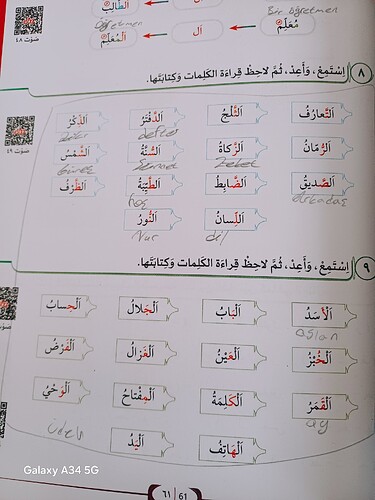 اَلطَّالِبُ
اَلْ
Öğretmen
Bir öğretmen
مُعَلِّمٌ
اَلْ
اَلْمُعَلِّمُ
صَوْت ٤٨
٨ اِسْتَمِعْ، وَأَعِدْ، ثُمَّ لاحِظْ قِرَاءَةَ الكَلِمَاتِ وَكِتَابَتَها.
صَوْت ٤٩
اَلتَّعارُفُ اَلثَّلْجُ اَلدَّفْتَرُ اَلذِّكْرُ
defter
اَلرُّمّانُ اَلزَّكاةُ اَلسُّنَّةُ اَلشَّمْسُ
اَلصَّديقُ اَلضَّابِطُ اَلطَّيِّبَةُ اَلظَّرْفُ
Arkadaş hoş
اَللِّسانُ اَلنُّورُ
dil Nur
٩ اِسْتَمِعْ، وَأَعِدْ، ثُمَّ لاحِظْ قِرَاءَةَ الكَلِمَاتِ وَكِتَابَتَها.
اَلْأَسَدُ اَلْبَابُ اَلْجَلالُ اَلْحِسابُ
aslan
اَلْخُبْزُ اَلْعَيْنُ اَلْغَزالُ اَلْفَرْضُ
اَلْقَمَرُ اَلْكَلِمَةُ اَلْمِفْتاحُ اَلْوَحْيُ
ay
اَلْهَاتِفُ اَلْيَدُ
Galaxy A34 5G
٦١ 61